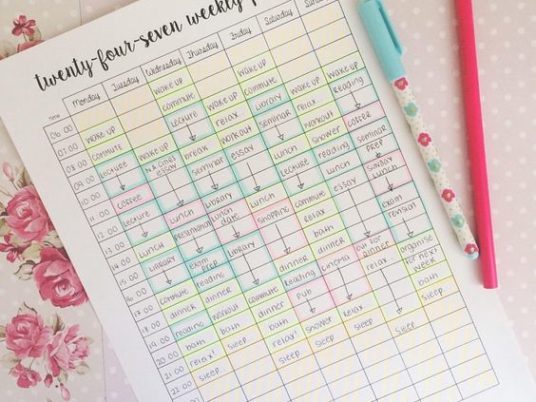 twenty-four-seven weekly
Monday Tuesday Wednesday Thursday Friday Saturday Sunday
TIME
06 00 wake up wake up
07 00 wake up commute wake up commute wake up wake up
08 00 commute lecture relax library relax reading
09 00 lecture wake up break workout seminar workout
10 00 essay seminar essay shower coffee
11 00 coffee lunch lecture reading seminar prep
12 00 lecture lunch library lunch essay lunch Sunday lunch
13 00 lunch lunch date shopping commute
14 00 library library relax exam revision
15 00 exam prep bath
16 00 commute dinner dinner out for dinner organise for next week
17 00 dinner dinner commute reading cinema relax
18 00 reading workout dinner pub bath
19 00 bath bath bath shower relax sleep
20 00 relax sleep sleep relax sleep sleep
21 00 sleep sleep sleep
22 00